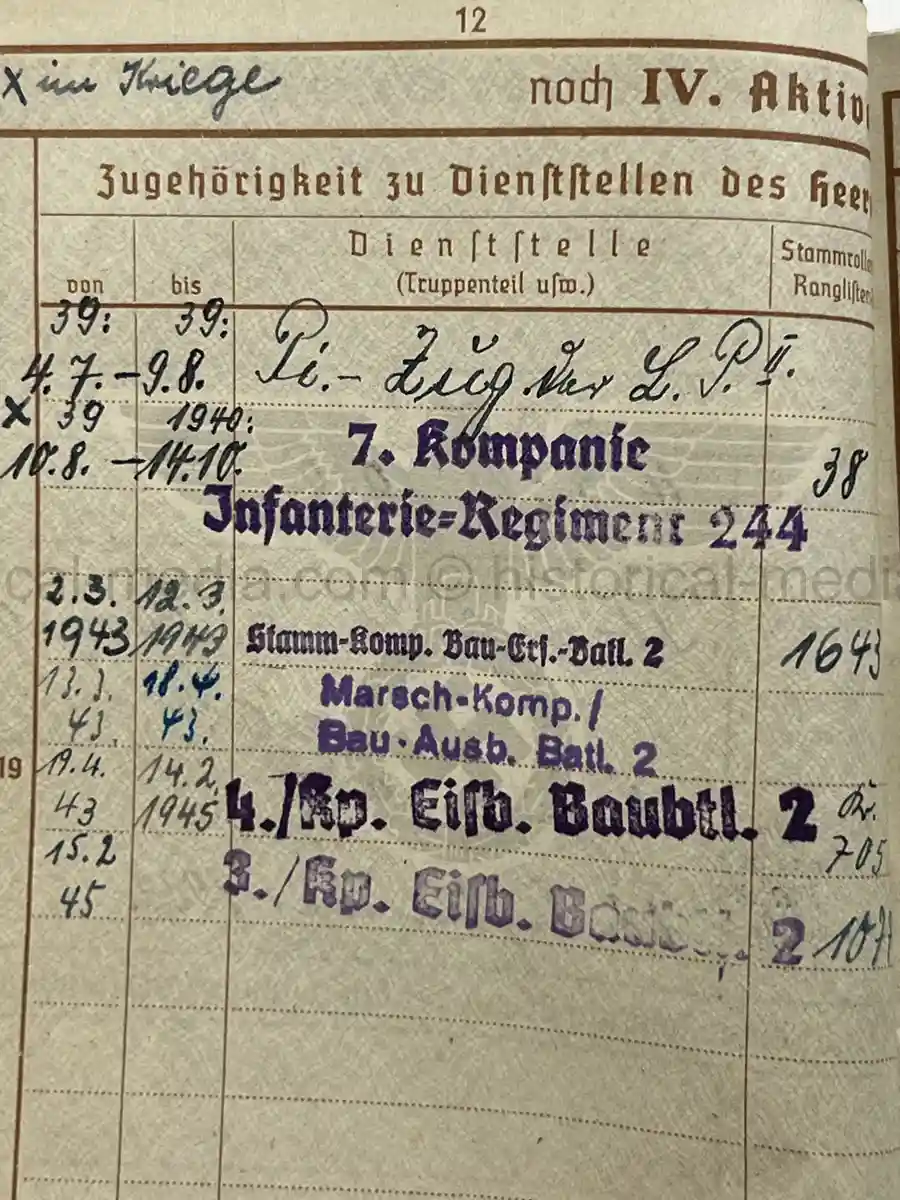 12
x im Kriege
noch IV. Aktiv
Zugehörigkeit zu Dienststellen des Heer
von
bis
Dienststelle
(Truppenteil usw.)
Stammrolle
Ranglisten
39: 39:
4.7. – 9.8. Pi.- Zug der L. P. II.
x 39 1940:
10.8. – 14.10. 7. Kompanie 38
Infanterie-Regiment 244
cal-media.com © historical-media
2.3. 12.3.
1943 1943 Stamm-Komp. Bau-Ers.-Batl. 2 1643
13.3. 18.4. Marsch-Komp./
43. 43. Bau-Ausb. Batl. 2
19
19.4. 14.2.
43 1945 4./Kp. Eisb. Baubtl. 2 Kr.
705
15.2
45 3./Kp. Eisb. Baubtl. 2 107